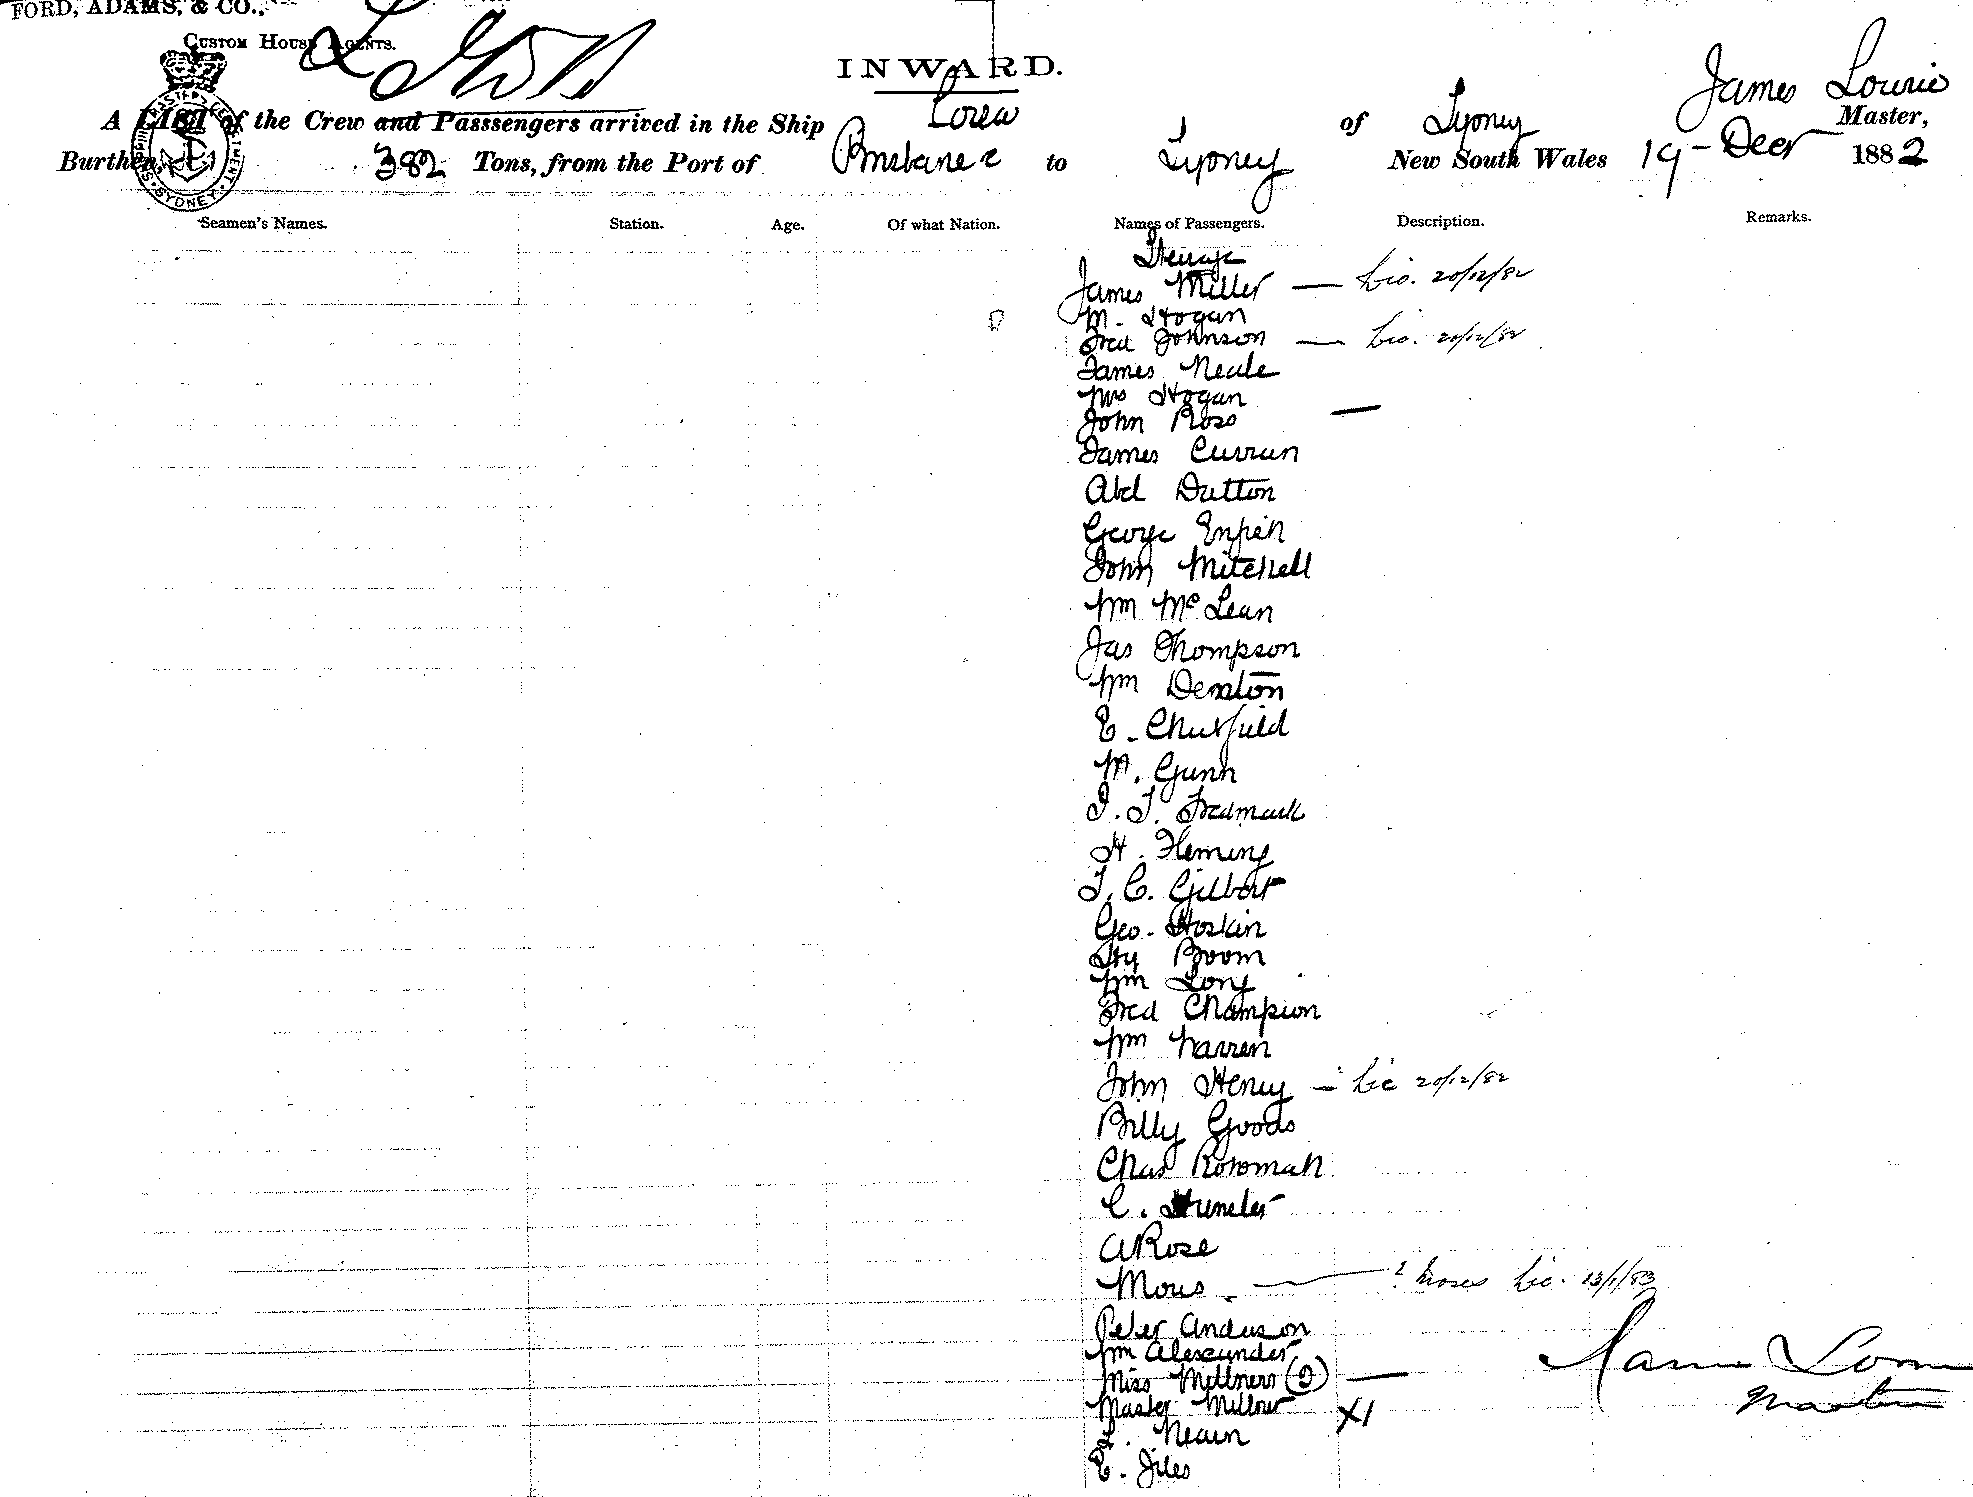 FORD, ADAMS, & CO.,
CUSTOM HOUSE AGENTS.
INWARD.
James Lourie
A LIST of the Crew and Passsengers arrived in the Ship Corea of Sydney Master,
Burthen, 382 Tons, from the Port of Brisbane to Sydney New South Wales 19 - Decr 1882
Seamen's Names. Station. Age. Of what Nation. Names of Passengers. Description. Remarks.
Steerage
James Miller — Lic. 20/12/82
M. Hogan
Fred Johnson — Lic. 20/12/82
James Neale
Mrs Hogan
John Ross —
James Curran
Abel Dutton
George
John Mitchell
Wm McLean
Jas Thompson
Wm Denton
E. Chatfield
M. Gunn
H. Fleming
T. C. Gilbert
Geo. Hoskin
Hy Broom
Wm Long
Fred Champion
Wm Warren
John Henry — Lic 20/12/82
Billy Goods
Chas
C. Hunter
A Rose
Moses — ? Moses Lic. 13/1/83
Peter Anderson
Wm Alexander
Miss (2) —
Master X1
E. Jiles
Master